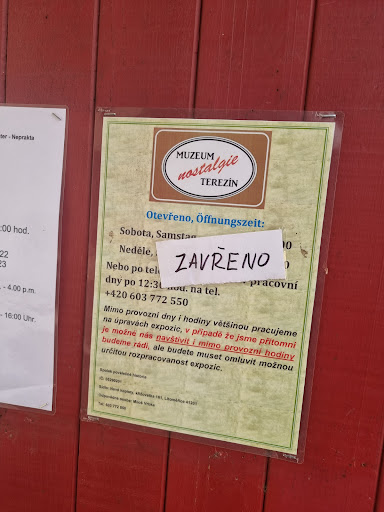 MUZEUM
nostalgie
TEREZÍN
Otevřeno, Öffnungszeit:
Sobota, Samstag
Neděle,
ZAVŘENO
Nebo po pracovní
dny po 12:30 hod. na tel.
+420 603 772 550
Mimo provozní dny i hodiny většinou pracujeme
na úpravách expozic, v případě že jsme přítomni
je možné nás navštívit i mimo provozní hodiny
budeme rádi, ale budete muset omluvit možnou
určitou rozpracovanost expozic.
ter - Neprakta
:00 hod.
22
23
. - 4.00 p.m.
- 16:00 Uhr.